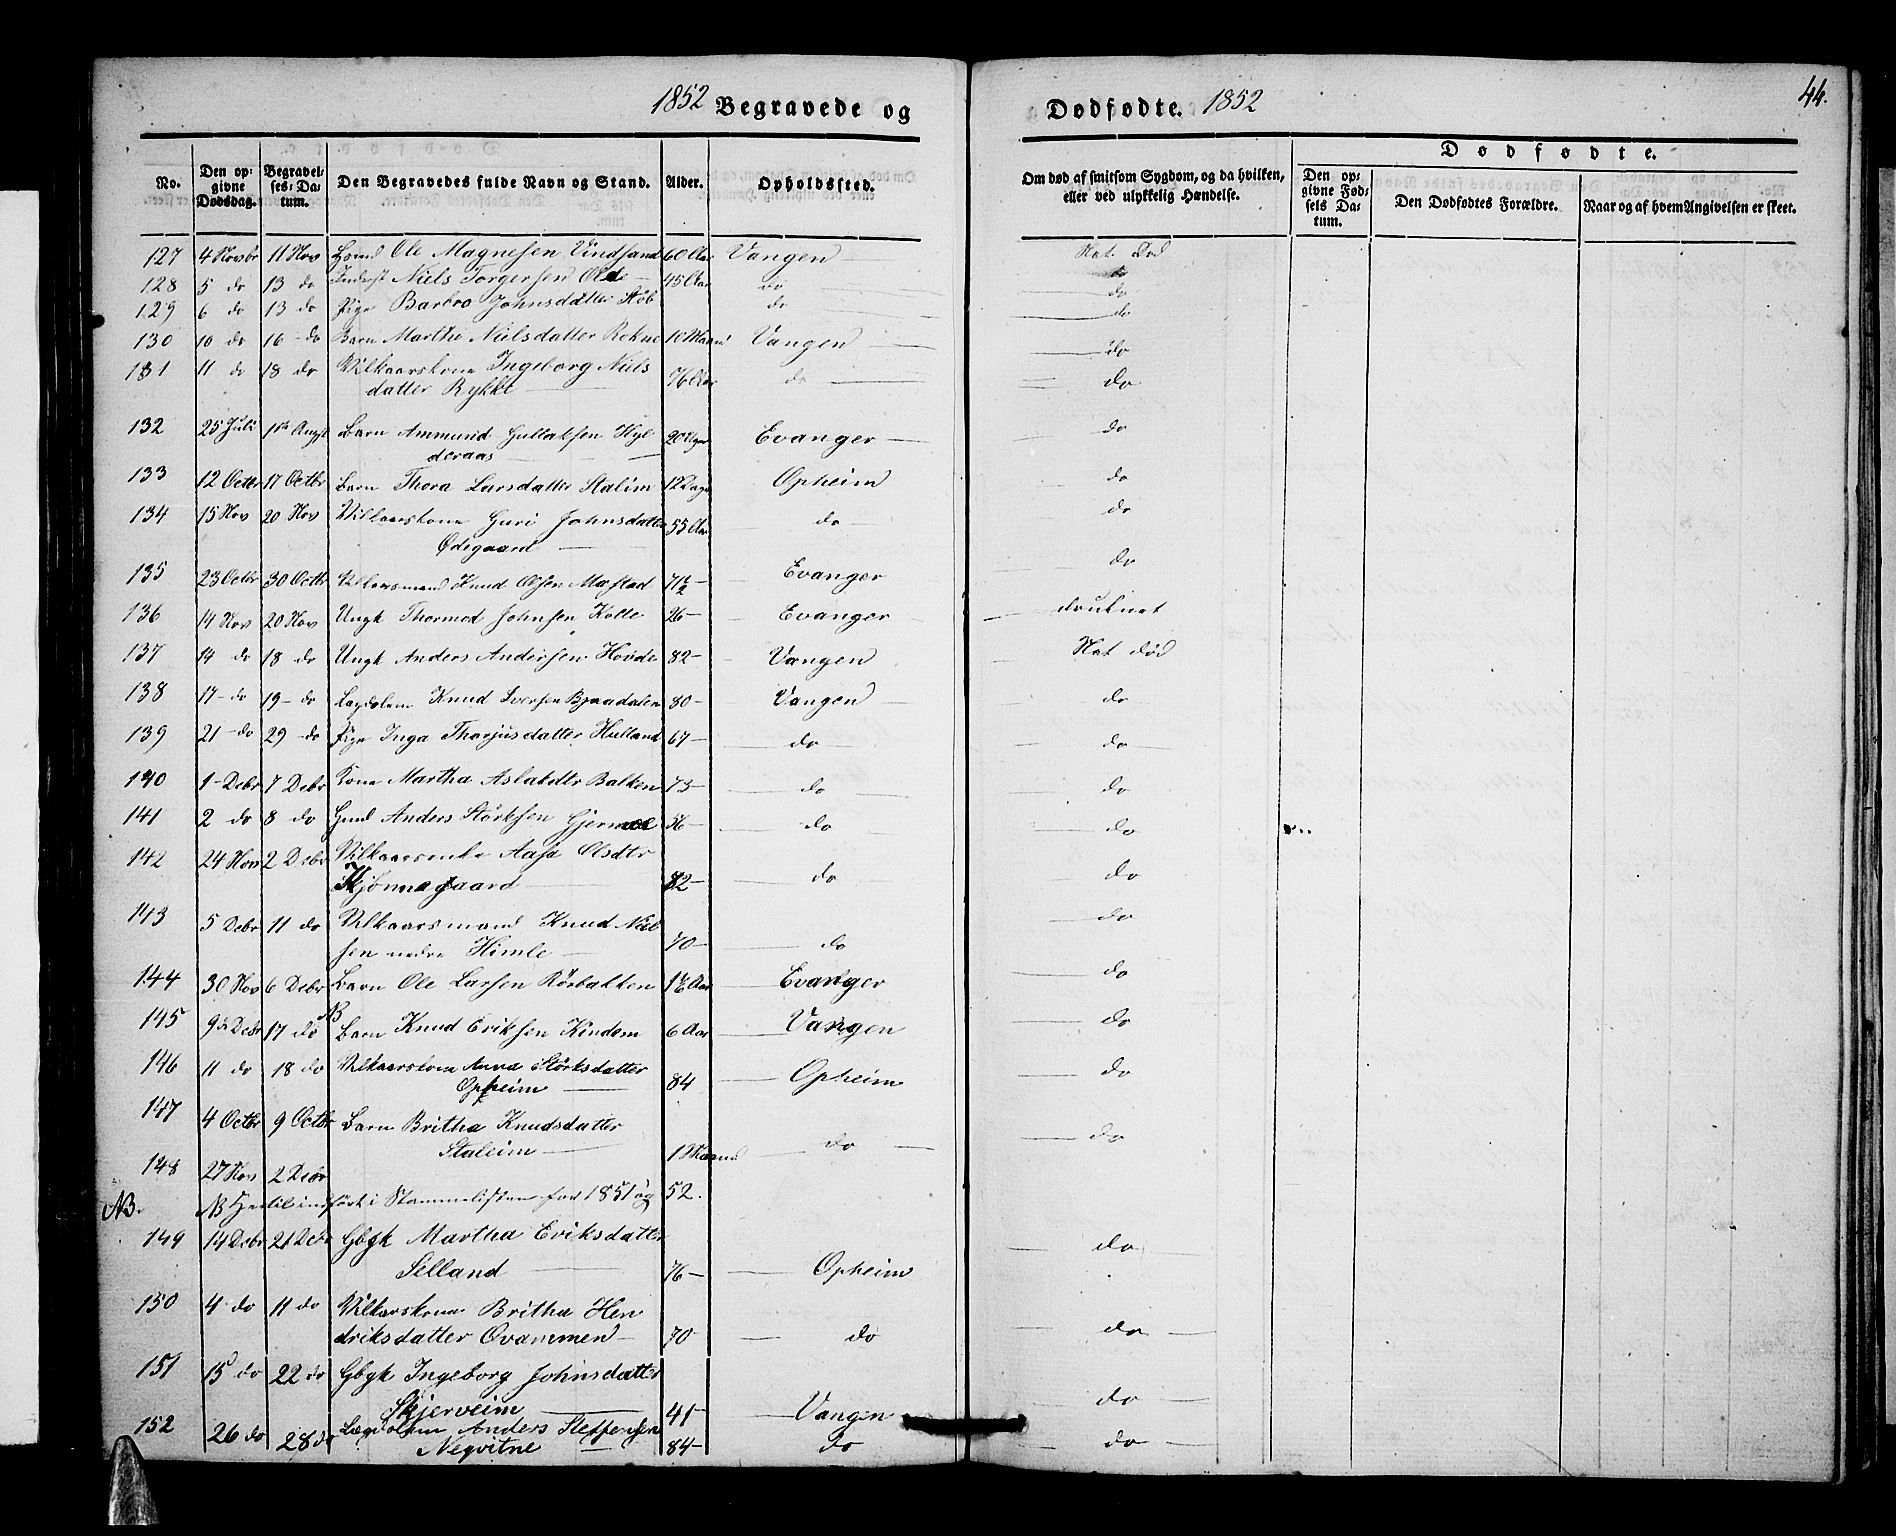 1852 Begravede og Dødfødte. 1852 44.
No. Den opgivne Dødsdag. Begravelses-Datum. Den Begravedes fulde Navn og Stand. Alder. Opholdssted. Om død af smitsom Sygdom, og da hvilken, eller ved ulykkelig Hændelse. Dødfødte. Den opgivne Fødsels Datum. Den Dødfødtes Forældre. Naar og af hvem Angivelsen er skeet.
127 4 Novbr 11 Nov Ole Magnesen Vindsand 60 Aar Vangen Nat. Død
128 5 do 13 do Inderst Niels Torgersen Olde 45 Aar do do
129 6 do 13 do Pige Barbro Johnsdatter do do
130 10 do 16 do Barn Martha Nielsdatter Rekne 10 Maand Vangen do
131 11 do 18 do Vilkaarskone Ingeborg Niels
datter Rykke 76 Aar do do
132 25 Juli 1ste Augst Barn Ammund Gullaksen Hyl
deraas 20 Uger Evanger do
133 12 Octbr 17 Octbr Barn Thora Larsdatter Stalim 12 Dage Opheim do
134 15 Nov 20 Nov Vilkaarskone Guri Johnsdatter
Ødegaard 55 Aar do do
135 23 Octbr 30 Octbr Knud Olsen Mæstad 71½ Evanger do
136 14 Nov 20 Nov Ungk Thormod Johnsen Kolle 26 Evanger druknet
137 14 do 18 do Ungk Anders Andersen Hovde 82 Vangen Nat død
138 17 do 19 do Lægdslem Knud Iversen Bjaadalen 80 Vangen do
139 21 do 29 do Pige Inga Thorjusdatter Hulland 67 do do
140 1 Debr 7 Debr Kone Martha Aslakdtr Balken 73 do do
141 2 do 8 do Anders Størksen Gjernes do do
142 24 Nov 2 Debr Vilkaarsenke Aasa Olsdtr
Skjønnagaard 82 do do
143 5 Debr 11 do Vilkaarsmand Knud Niel
sen nedre Himle 70 do do
144 30 Nov 6 Debr Barn Ole Larsen Rørbakken 1½ Aar Evanger do
145 9de Debr 17 do NB Barn Knud Eriksen Kindem 6 Aar Vangen do
146 11 do 18 do Vilkaarskone Anna Størksdatter
Opheim 84 Opheim do
147 4 Octbr 9 Octbr Barn Britha Knudsdatter
Staleim 1 Maaned do do
148 27 Nov 2 Debr
NB. NB Hertil indført i Stammelisten for 1851 og 52.
149 14 Debr 21 Debr Gbgk Martha Eriksdatter
Selland 76 Opheim do
150 4 do 11 do Vilkarskone Britha Hen
driksdatter Qvammen 70 do do
151 15 do 22 do Gbgk Ingeborg Johnsdatter
Skjerveim 41 Vangen do
152 26 do 28 do Lægdslem Anders Steffensen
Neqvitne 84 do do